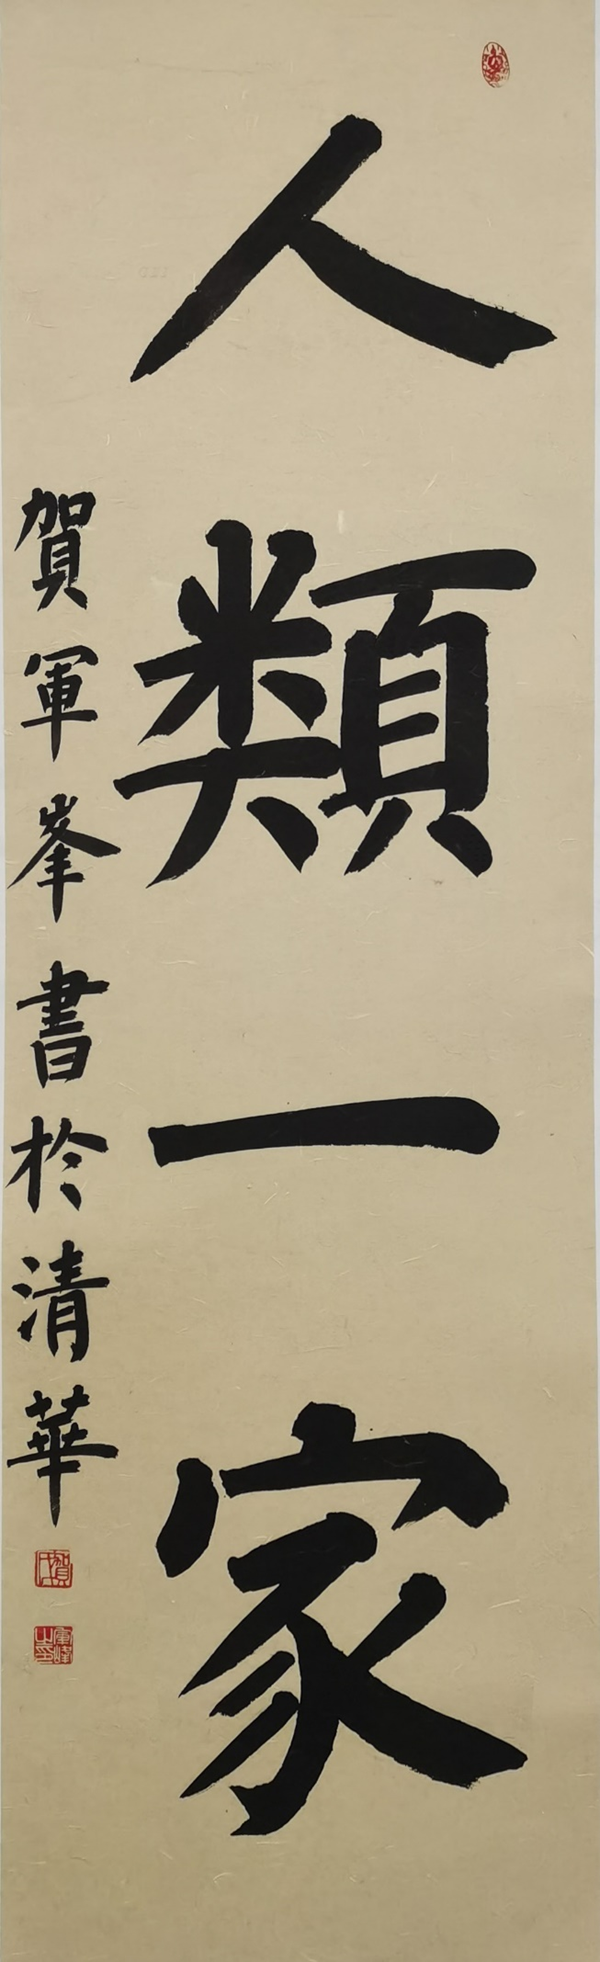 人類一家
賀軍峯書於清華